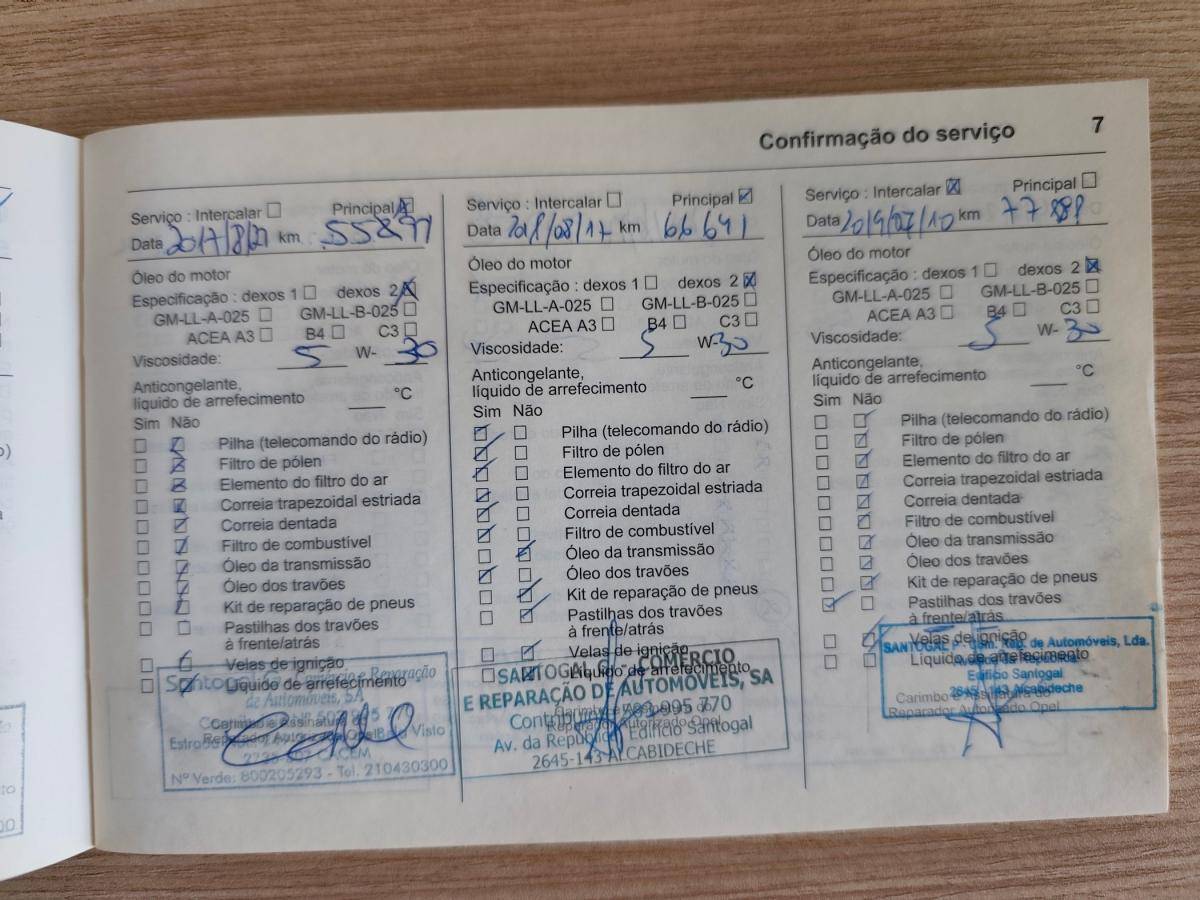 Confirmação do serviço 7
Serviço : Intercalar Principal
Data 2017/8/21 km 55897
Óleo do motor
Especificação : dexos 1 dexos 2
GM-LL-A-025 GM-LL-B-025
ACEA A3 B4 C3
Viscosidade: 5 W- 30
Anticongelante,
líquido de arrefecimento °C
Sim Não
Pilha (telecomando do rádio)
Filtro de pólen
Elemento do filtro do ar
Correia trapezoidal estriada
Correia dentada
Filtro de combustível
Óleo da transmissão
Óleo dos travões
Kit de reparação de pneus
Pastilhas dos travões
à frente/atrás
Velas de ignição
Líquido de arrefecimento
Santogal Comércio e Reparação
de Automóveis, SA
Carimbo e Assinatura
Reparador Autorizado Opel
Nº Verde: 800205293 - Tel. 210430300
Serviço : Intercalar Principal
Data 2018/08/17 km 66641
Óleo do motor
Especificação : dexos 1 dexos 2
GM-LL-A-025 GM-LL-B-025
ACEA A3 B4 C3
Viscosidade: 5 W- 30
Anticongelante,
líquido de arrefecimento °C
Sim Não
Pilha (telecomando do rádio)
Filtro de pólen
Elemento do filtro do ar
Correia trapezoidal estriada
Correia dentada
Filtro de combustível
Óleo da transmissão
Óleo dos travões
Kit de reparação de pneus
Pastilhas dos travões
à frente/atrás
Velas de ignição
Líquido de arrefecimento
SANTOGAL COMÉRCIO
E REPARAÇÃO DE AUTOMÓVEIS, SA
995 770
Reparador Autorizado Opel
Av. da República Edifício Santogal
2645-143 ALCABIDECHE
Serviço : Intercalar Principal
Data 2019/07/10 km
Óleo do motor
Especificação : dexos 1 dexos 2
GM-LL-A-025 GM-LL-B-025
ACEA A3 B4 C3
Viscosidade: 5 W- 30
Anticongelante,
líquido de arrefecimento °C
Sim Não
Pilha (telecomando do rádio)
Filtro de pólen
Elemento do filtro do ar
Correia trapezoidal estriada
Correia dentada
Filtro de combustível
Óleo da transmissão
Óleo dos travões
Kit de reparação de pneus
Pastilhas dos travões
à frente/atrás
Velas de ignição
SANTOGAL P - Com. Rep. de Automóveis, Lda.
Líquido de arrefecimento
Edifício Santogal
2645-143 Alcabideche
Carimbo e Assinatura do
Reparador Autorizado Opel